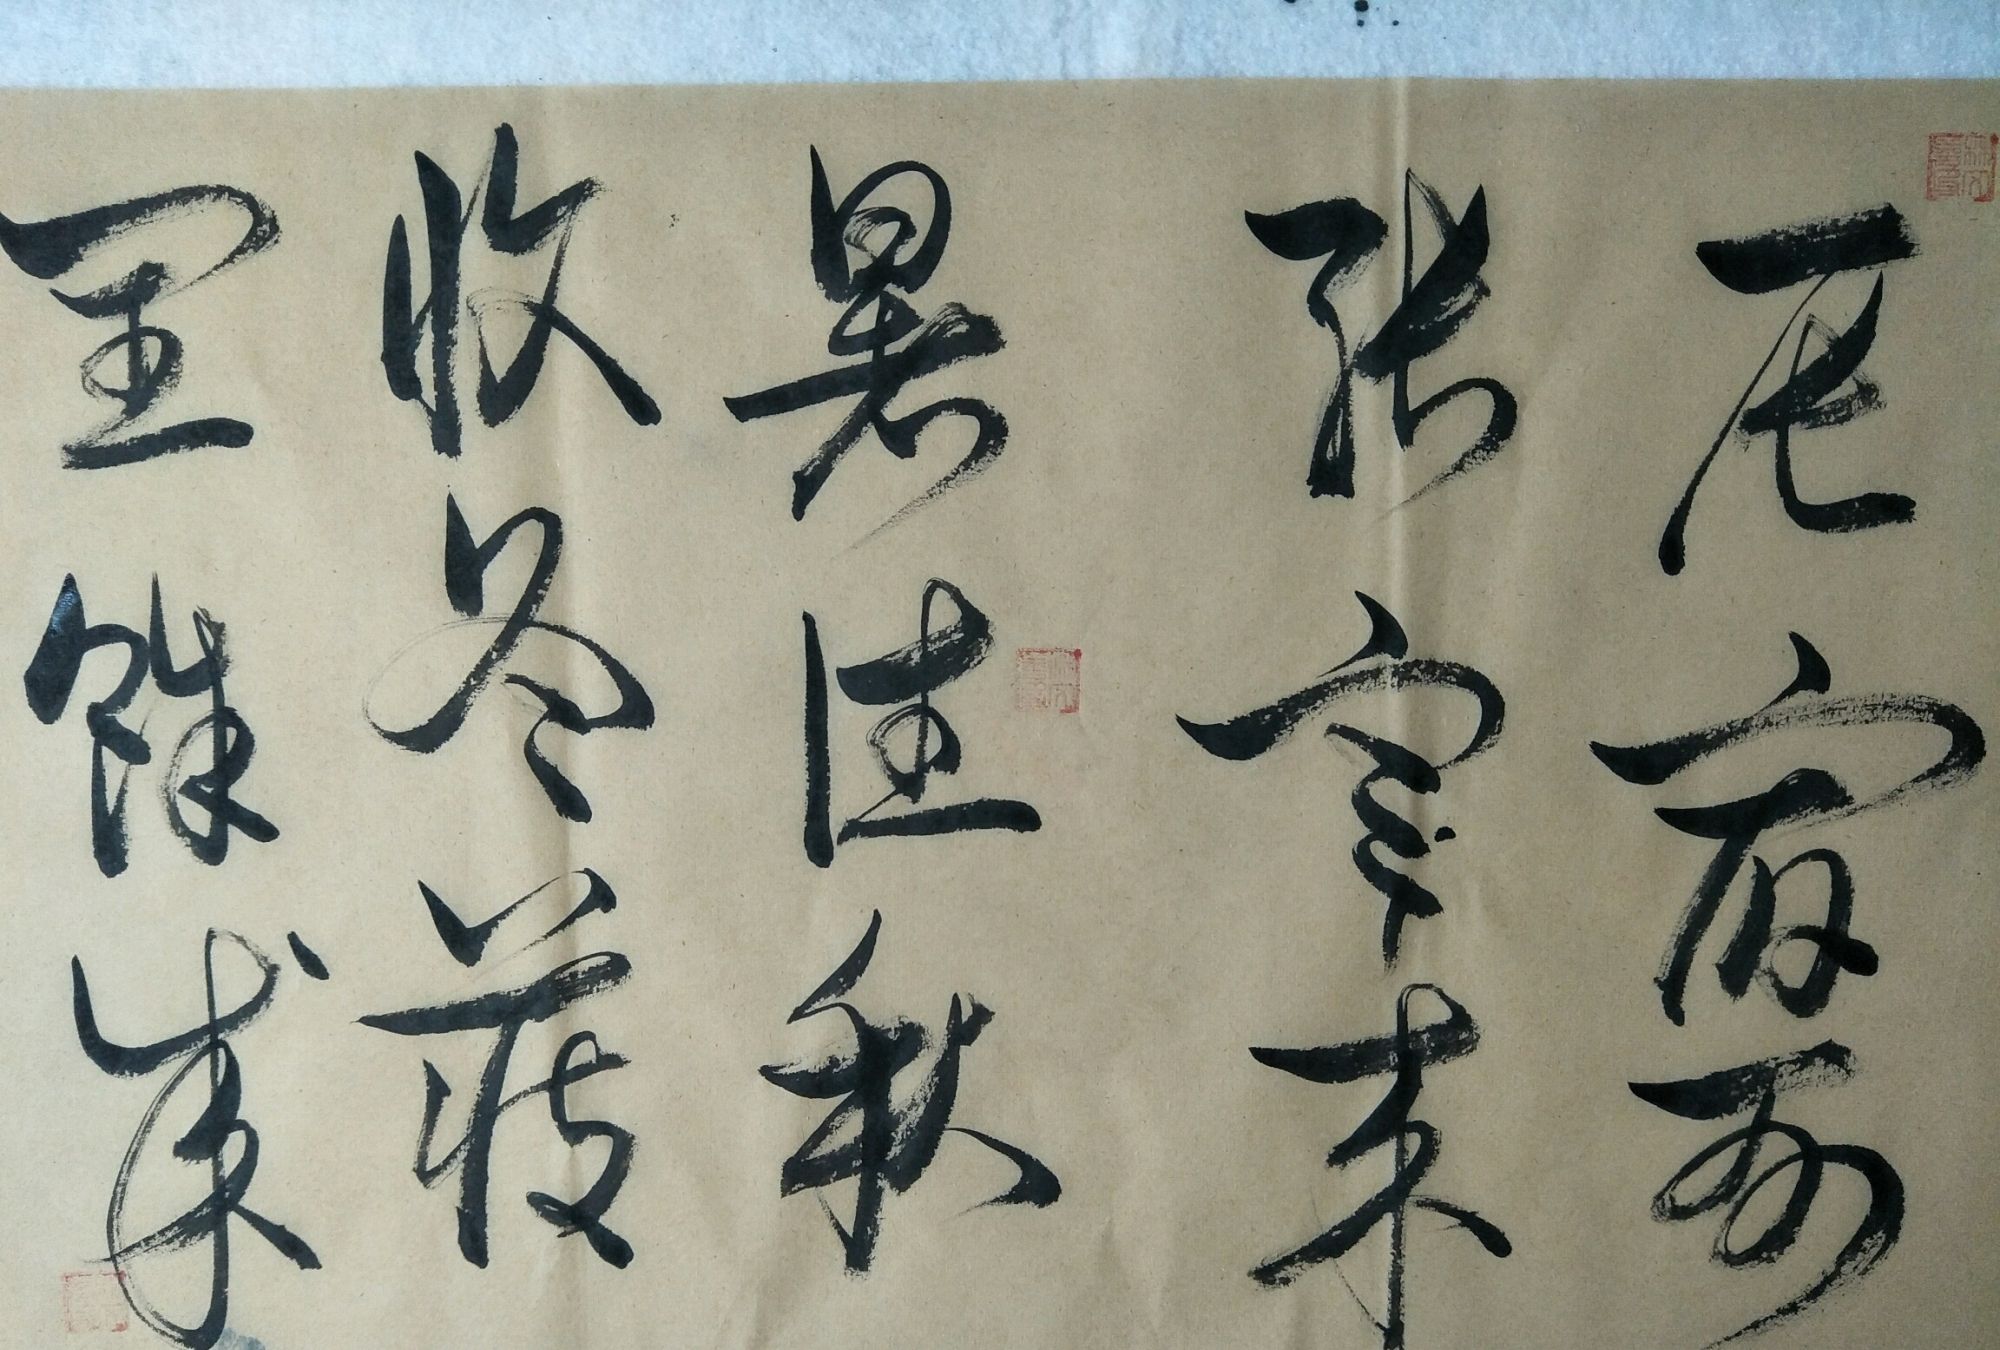 昃宿列
張寒來
暑往秋
收冬藏
閏餘成